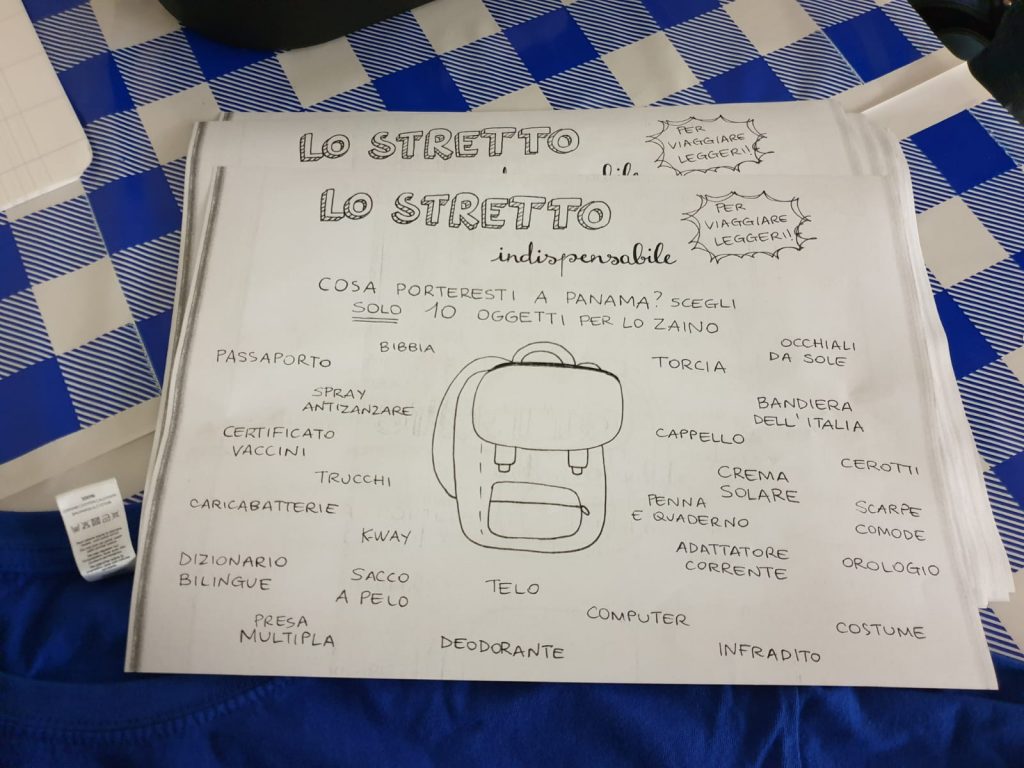 LO STRETTO
PER
VIAGGIARE
LEGGERI!
LO STRETTO
indispensabile
PER
VIAGGIARE
LEGGERI!!
COSA PORTERESTI A PANAMA? SCEGLI
SOLO 10 OGGETTI PER LO ZAINO
PASSAPORTO
BIBBIA
TORCIA
OCCHIALI
DA SOLE
SPRAY
ANTIZANZARE
BANDIERA
DELL'ITALIA
CERTIFICATO
VACCINI
CAPPELLO
CEROTTI
TRUCCHI
CREMA
SOLARE
CARICABATTERIE
PENNA
E QUADERNO
SCARPE
COMODE
K-WAY
ADATTATORE
CORRENTE
OROLOGIO
DIZIONARIO
BILINGUE
SACCO
A PELO
TELO
COMPUTER
PRESA
MULTIPLA
DEODORANTE
INFRADITO
COSTUME